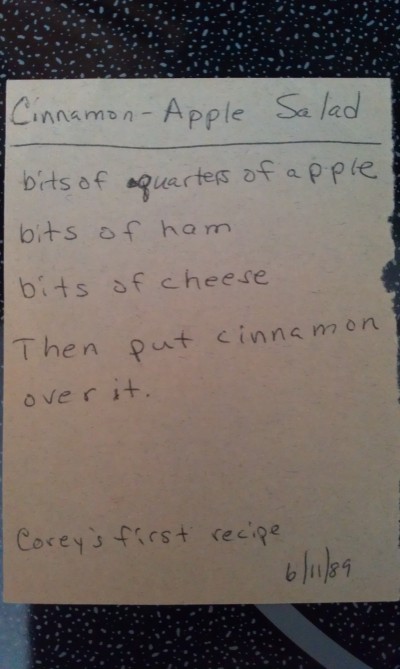 Cinnamon-Apple Salad
bits of quarters of apple
bits of ham
bits of cheese
Then put cinnamon
over it.
Corey's first recipe
6/11/89